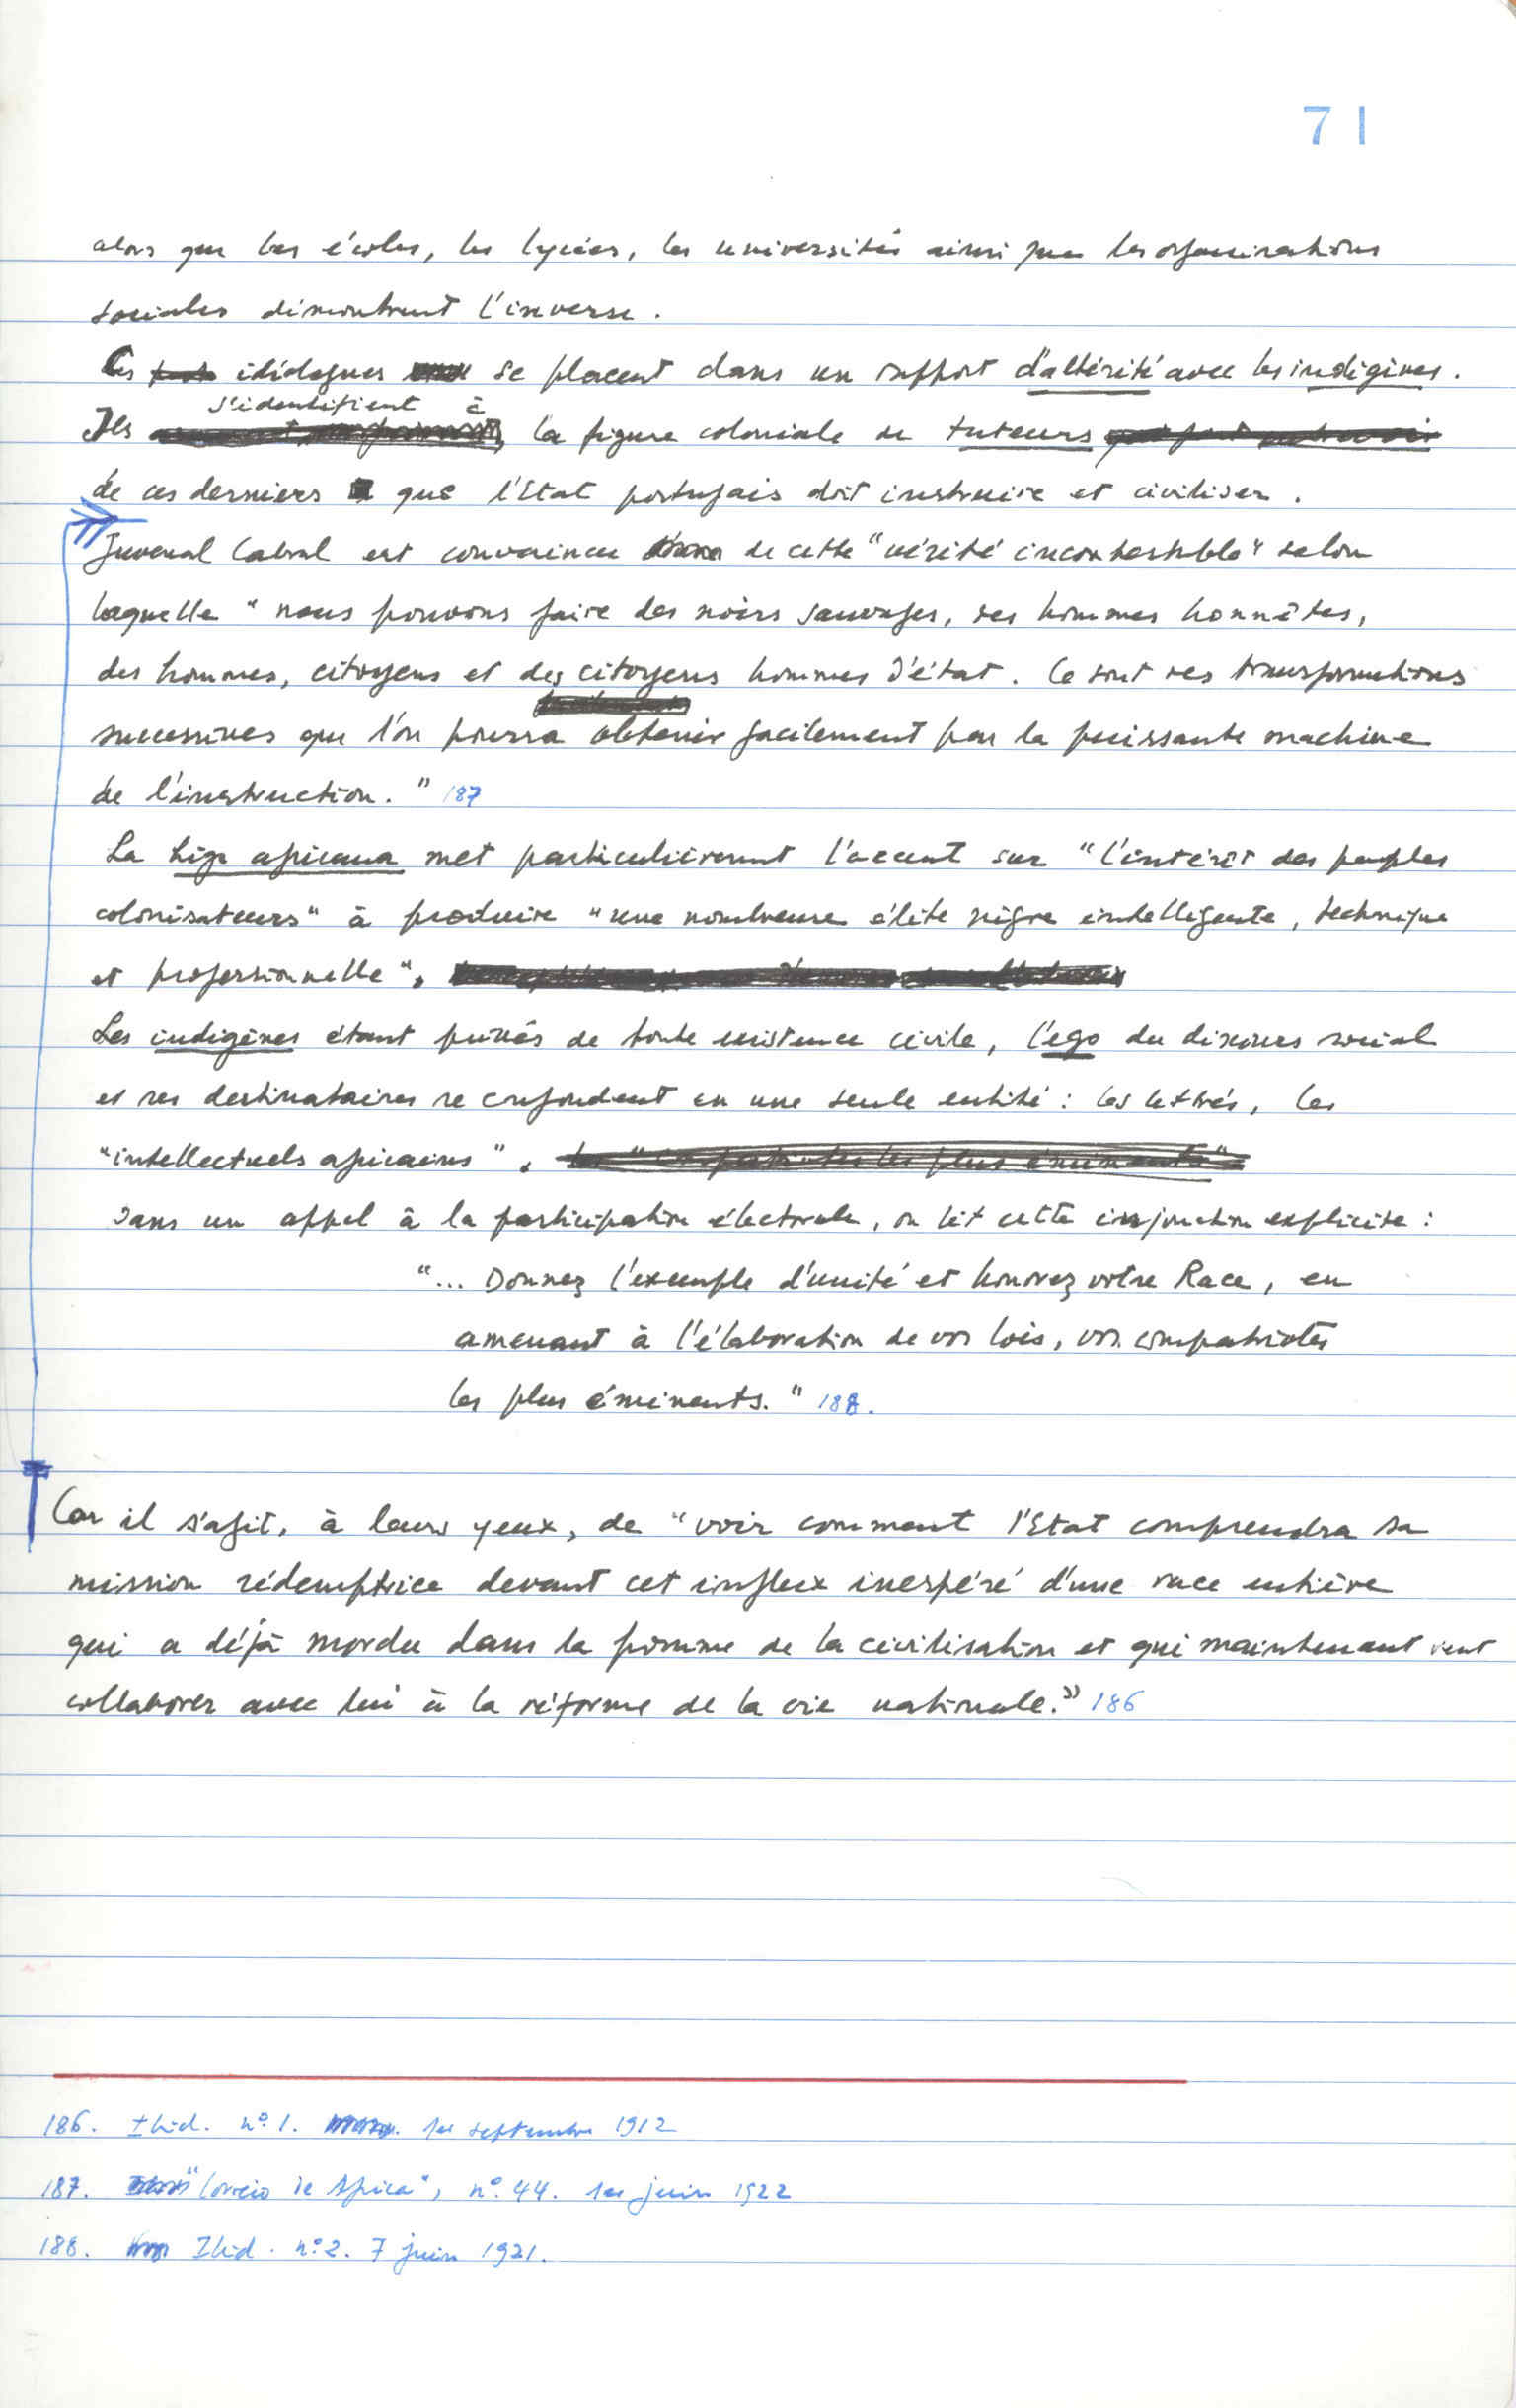 71
alors que les écoles, les lycées, les universités ainsi que les organisations
sociales démontrent l'inverse.
Ces idéologues se placent dans un rapport d'altérité avec les indigènes.
s'identifient à
Ils la figure coloniale de tuteurs
de ces derniers que l'Etat portugais doit instruire et civiliser.
Juvenal Cabral est convaincu de cette "vérité incontestable" selon
laquelle "nous pouvons faire des noirs sauvages, des hommes honnêtes,
des hommes, citoyens et des citoyens hommes d'état. Ce sont des transformations
successives que l'on pourra obtenir facilement par la puissante machine
de l'instruction." 187
La Liga africana met particulièrement l'accent sur "l'intérêt des peuples
colonisateurs" à produire "une nombreuse élite nègre intelligente, technique
et professionnelle".
Les indigènes étant privés de toute existence civile, l'ego du discours social
et ses destinataires se confondent en une seule entité : les lettrés, les
"intellectuels africains". les "compatriotes les plus éminents"
Dans un appel à la participation électorale, on lit cette injonction explicite :
"... Donnez l'exemple d'unité et honorez votre Race, en
amenant à l'élaboration de vos lois, vos compatriotes
les plus éminents." 188.
Car il s'agit, à leurs yeux, de "voir comment l'Etat comprendra sa
mission rédemptrice devant cet influx inespéré d'une race entière
qui a déjà mordu dans la pomme de la civilisation et qui maintenant veut
collaborer avec lui à la réforme de la vie nationale." 186
186. Ibid. nº 1. 1er septembre 1912
187. "Correio de Africa", nº 44. 1er juin 1922
188. Ibid. nº 2. 7 juin 1921.